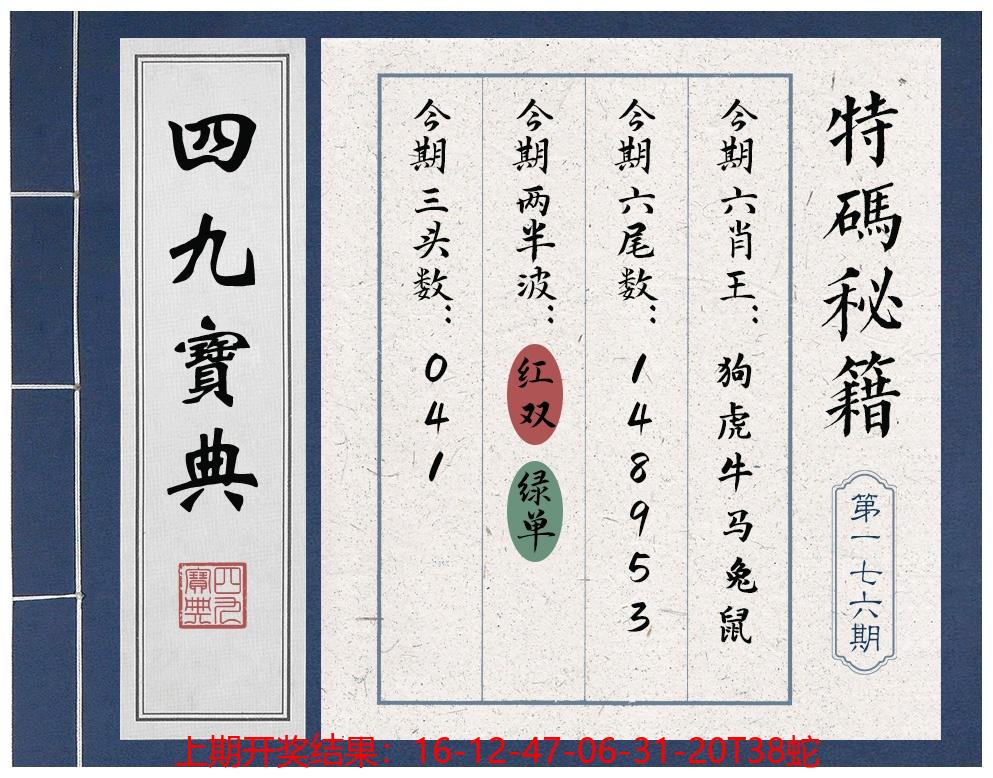 特碼秘籍
第一七六期
今期六肖王：狗虎牛马兔鼠
今期六尾数：148953
今期两半波：红双 绿单
今期三头数：041
四九寶典
四九寶典
上期开奖结果：16-12-47-06-31-20T38蛇